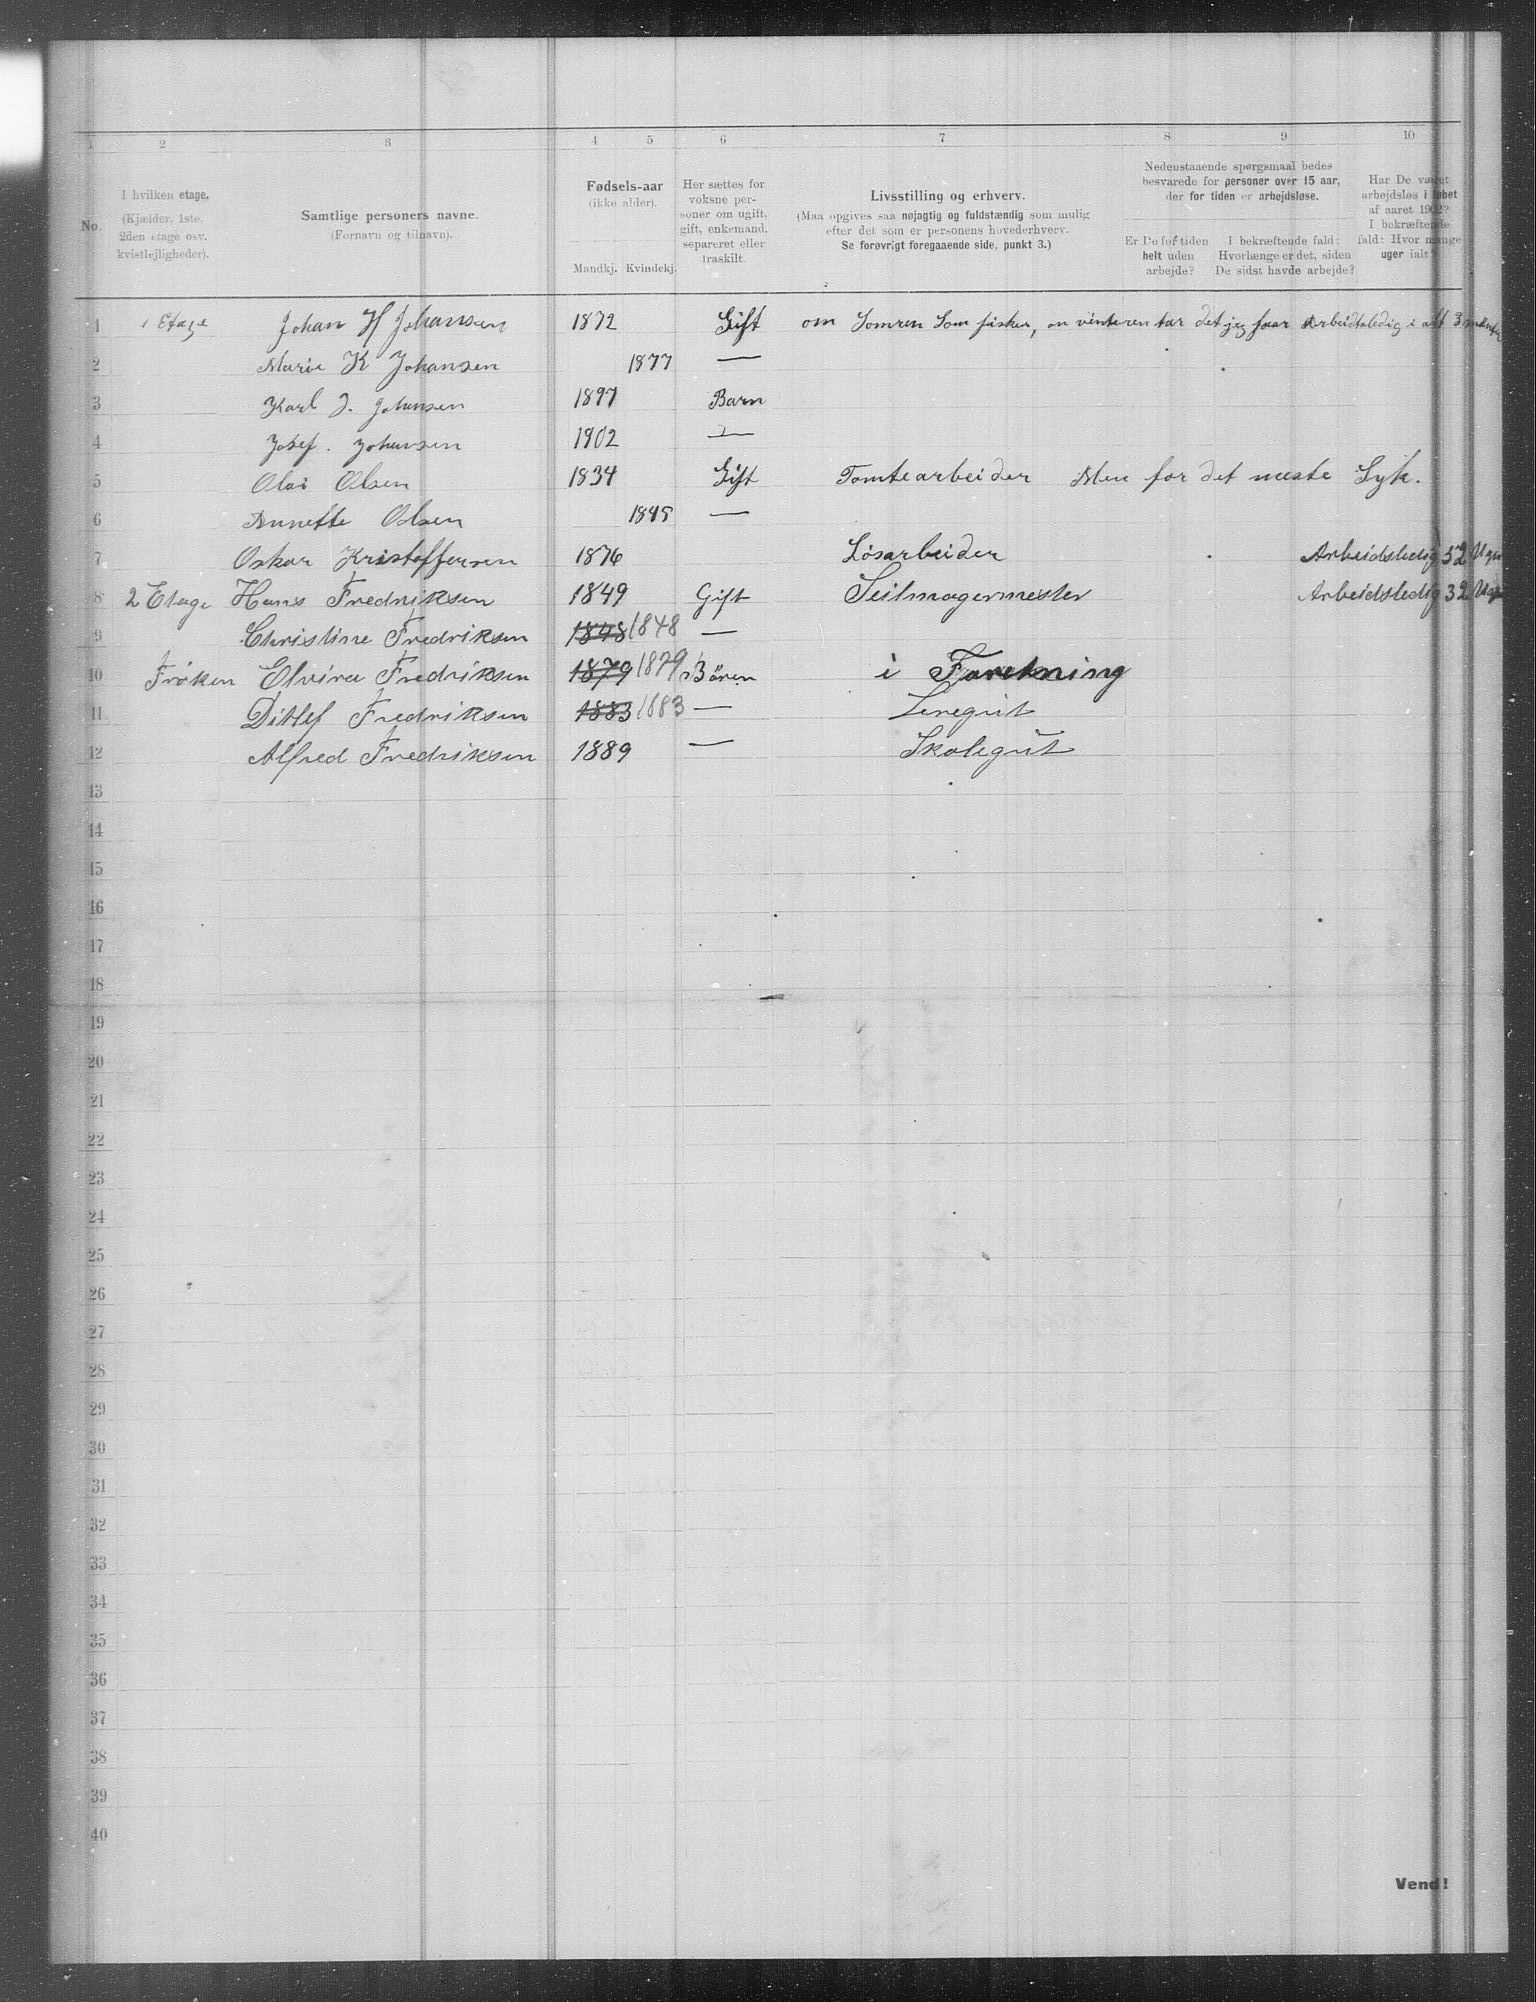 1 2 3 4 5 6 7 8 9 10
No.
I hvilken etage.
(Kjælder, 1ste.
2den etage osv.
kvistlejligheder).
Samtlige personers navne.
(Fornavn og tilnavn).
Fødsels-aar
(ikke alder).
Mandkj. Kvindekj.
Her sættes for
voksne per-
soner om ugift,
gift, enkemand,
separeret eller
fraskilt.
Livsstilling og erhverv.
(Maa opgives saa nøjagtig og fuldstændig som mulig
efter det som er personens hovederhverv.
Se forøvrigt foregaaende side, punkt 3.)
Nedenstaaende spørgsmaal bedes
besvarede for personer over 15 aar,
der for tiden er arbejdsløse.
Er De for tiden
helt uden
arbejde?
I bekræftende fald:
Hvorlænge er det, siden
De sidst havde arbejde?
Har De været
arbejdsløs i løbet
af aaret 1902?
I bekræftende
fald: Hvor mange
uger ialt?
1 1 Etage Johan H Johansen 1872 Gift om Somren Som fisker, om vinteren tar det jeg faar Arbeidtsledig i alt 3 mdnter
2 Marie K Johansen 1877 —
3 Karl J. Johansen 1897 Barn
4 Josef. Johansen 1902 —
5 Olai Olsen 1834 Gift Tomtearbeider Men for det meste Syk.
6 Annette Olsen 1845 —
7 Oskar Kristoffersen 1876 Løsarbeider Arbeidsledig 52 Uger
8 2 Etage Hans Fredriksen 1849 Gift Seilmagermester Arbeidsledig 32 Uger
9 Christine Fredriksen 1848 1848 —
10 Frøken Elvira Fredriksen 1879 1879 Bören i Foretning
11 Ditlef Fredriksen 1883 1883 — Leregut
12 Alfred Fredriksen 1889 — Skolegut
13
14
15
16
17
18
19
20
21
22
23
24
25
26
27
28
29
30
31
32
33
34
35
36
37
38
39
40
Vend!